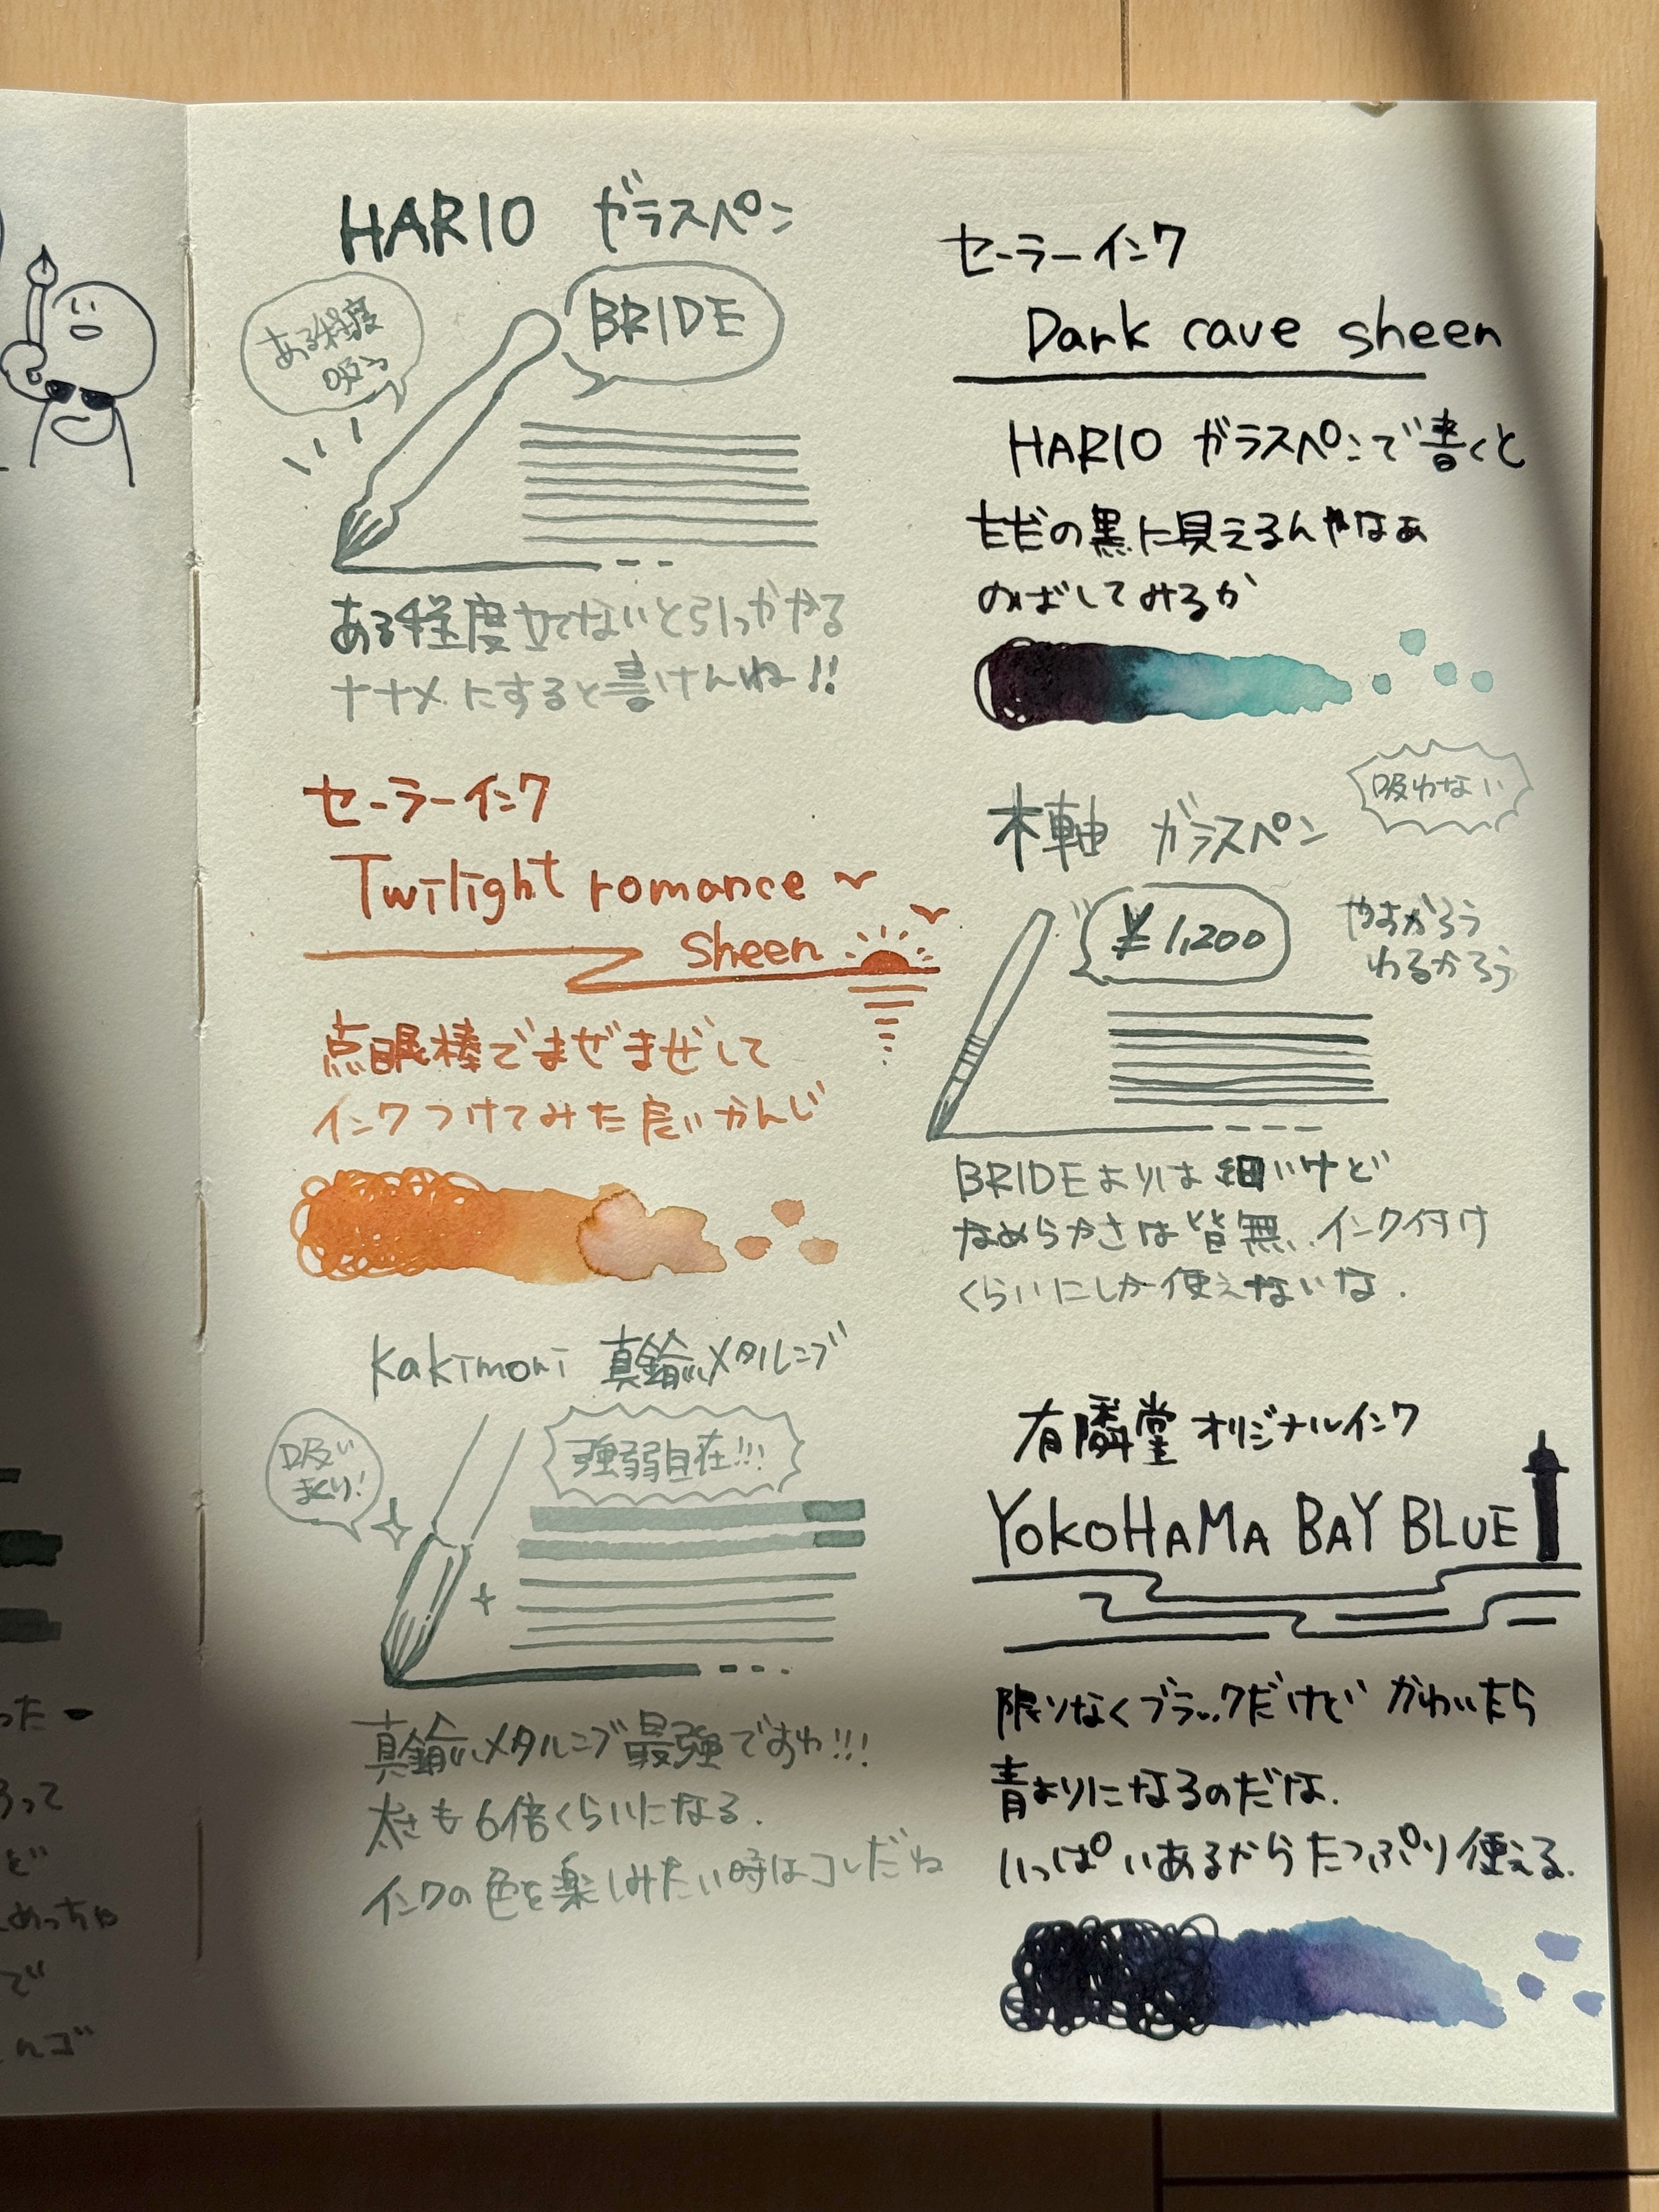 HARIO ガラスペン
ある程度
吸う
BRIDE
ある程度立てないと引っかかる
ナナメにすると書けんね!!
セーラーインク
Twilight romance
sheen
点眼棒でまぜまぜして
インクつけてみた良いかんじ
kakimori 真鍮メタルニブ
吸い
まくり!
強弱自在!!!
真鍮メタルニブ最強ですわ!!!
太さも6倍くらいになる.
インクの色を楽しみたい時はコレだね
セーラーインク
Dark cave sheen
HARIO ガラスペンで書くと
ただの黒に見えるんやなぁ
のばしてみるか
吸わない
木軸 ガラスペン
¥1,200
やすかろう
わるかろう
BRIDEよりは細いけど
なめらかさは皆無.インク付け
くらいにしか使えないな.
有隣堂 オリジナルインク
YOKOHAMA BAY BLUE
限りなくブラックだけど かわいたら
青よりになるのだな.
いっぱいあるからたっぷり使える.
った
って
ど
めっちゃ
で
んゴ